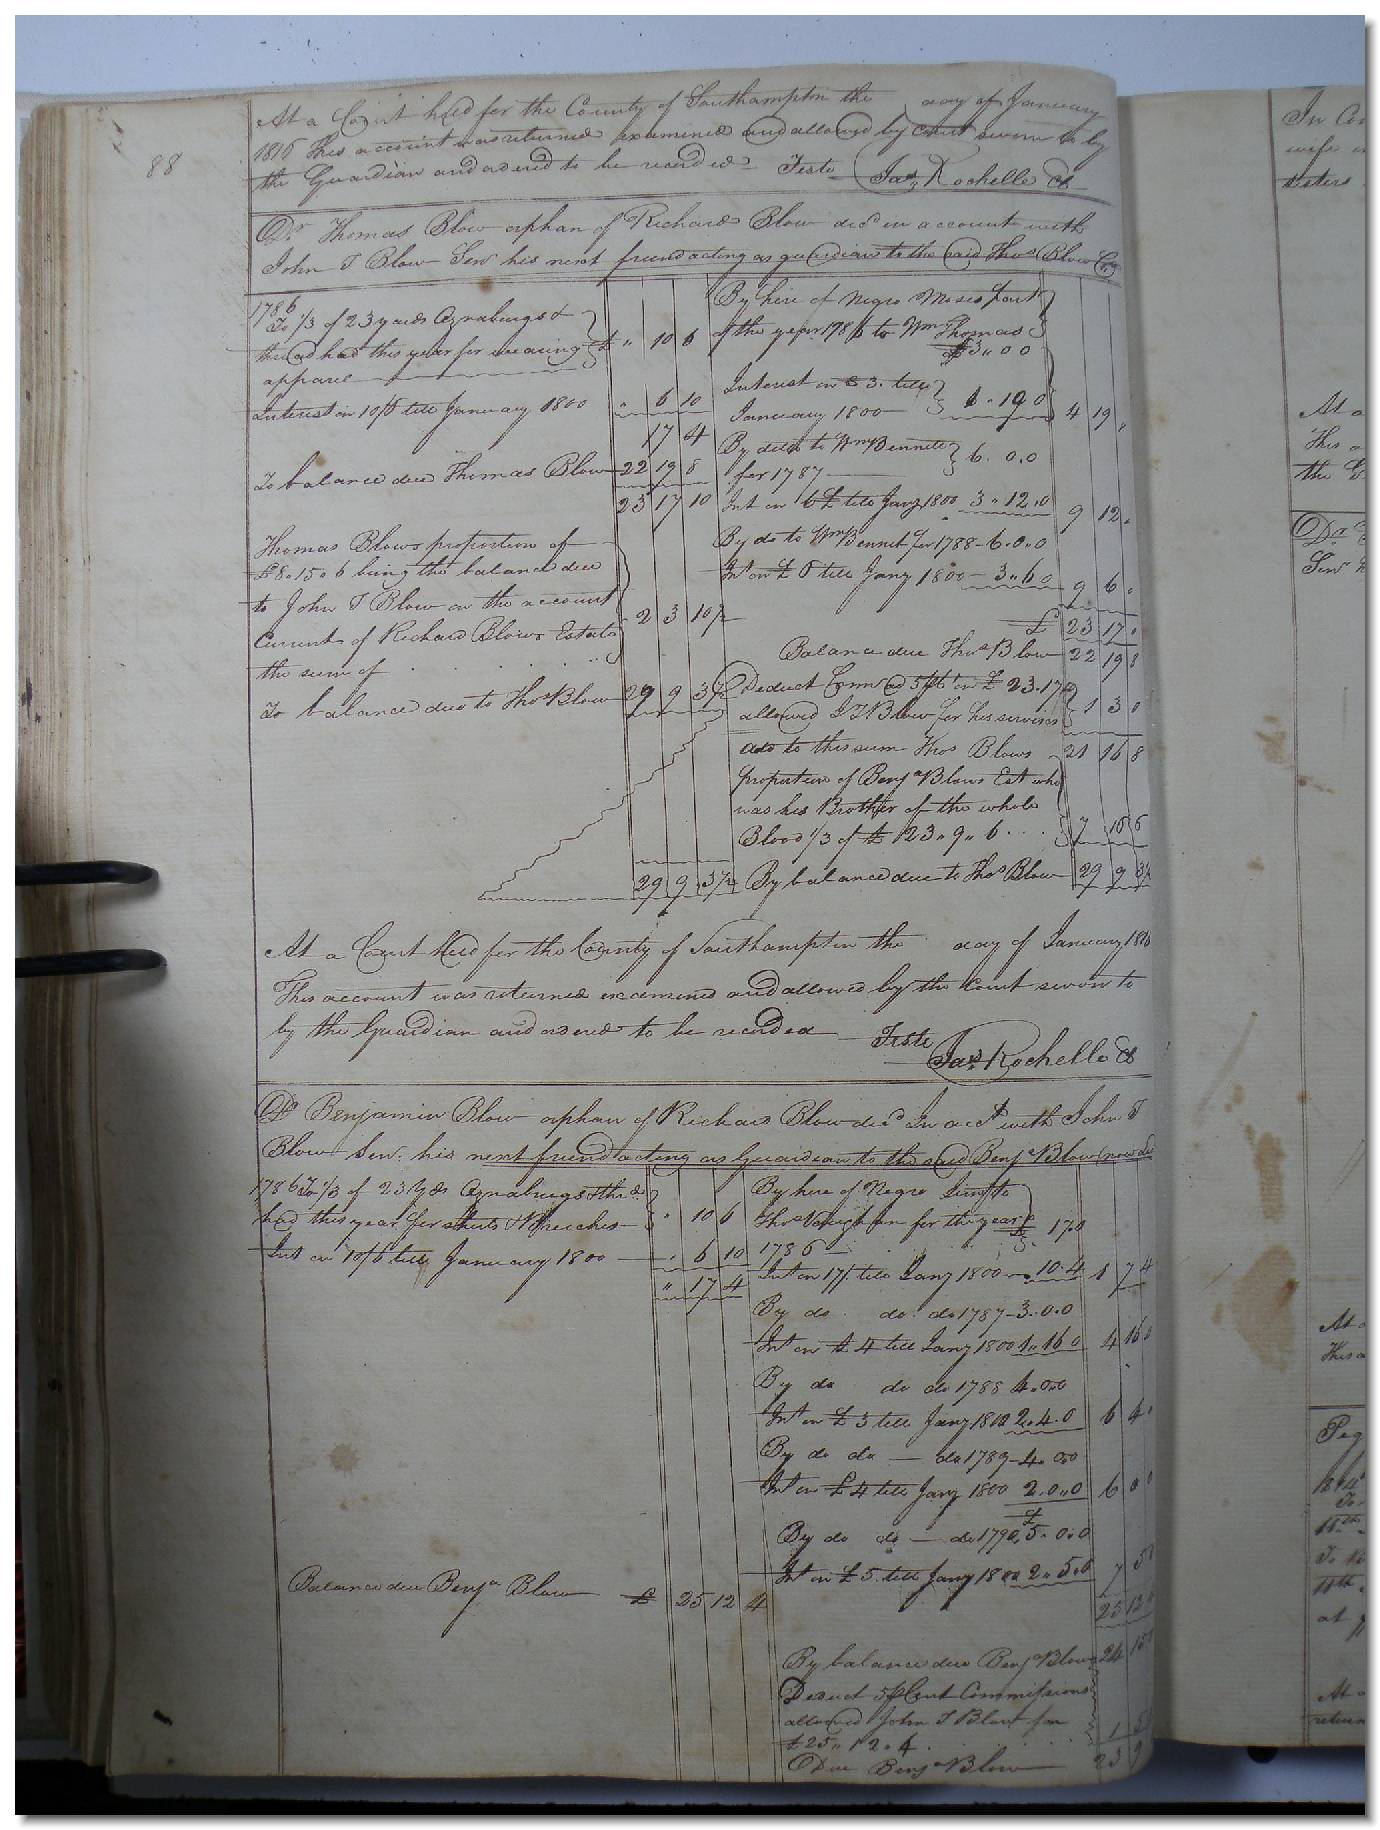 88
At a Court held for the County of Southampton the day of January
1816 This account was returned examined and allowed by Court sworn to by
the Guardian and ordered to be recorded Teste Jas Rochelle Ck
Dr Thomas Blow orphan of Richard Blow decd in account with
John T Blow Senr his next friend acting as guardian to the said Thos Blow Cr
1786
To 1/3 of 23 yards Oznabrugs &
thread had this year for wearing £ " 10 6
apparel
Interest on 10/6 till January 1800 " 6 10
17 4
To balance due Thomas Blow 22 19 8
23 17 10
Thomas Blows proportion of
£8.15.6 being the balance due
to John T Blow on the account
Current of Richard Blows Estate 2 3 10½
the sum of
To balance due to Thos Blow 29 9 3½
29 9 3½
By hire of Negro Moses part
of the year 1786 to Wm Thomas
£3 " 0 0
Interest on £3. till
January 1800 1 . 19 0 4 19 "
By ditto to Wm Bennett
for 1787 6. 0.0
Int on 6£ till Jany 1800 3 " 12.0 9 12 "
By do to Wm Bennet for 1788 - 6.0.0
Int on £6 till Jany 1800 - 3.. 6 0 9 6 0
£ 23 17 0
Balance due Thos Blow 22 19 8
Deduct Comns @ 5 pct on £ 23.17
allowed J T Blow for his services 1 3 0
add to this sum Thos Blows 21 16 8
proportion of Benja Blows Est who
was his Brother of the whole
Blood 1/3 of £ 23 " 9 " 6 7 16 6
By balance due to Thos Blow 29 9 3½
At a Court Held for the County of Southampton the day of January 1816
This account was returned examined and allowed by the Court sworn to
by the Guardian and ordered to be recorded Teste
Jas Rochelle Ck
Dr Benjamin Blow orphan of Richard Blow decd In acct with John T
Blow Senr. his next friend acting as Guardian to the said Benja Blow (now decd
1786 To 1/3 of 23 Yds Oznabrugs & thrd
had this year for shirts & Breeches " 10 6
Int on 10/6 till January 1800 " 6 10
" 17 4
Balance due Benja Blow £ 25 12 4
By hire of Negro to
Thos Vaughan for the year £ 17.0
1786
Int on 17/. till Jany 1800 10.4 1 7 4
By do do do 1787 - 3.0.0
Int on £ 4 till Jany 1800 1 " 16 0 4 16 0
By do do do 1788 4.0.0
Int on £ 3 till Jany 1800 2.4.0 6 4 "
By do do do 1789 - 4. 0.0
Int on £ 4 till Jany 1800 2.0.0 6 0 0
£
By do do do 1790 5. 0.0
Int on £ 5 till Jany 1800 2 " 5.0 7 5
25 12
By balance due Benja Blow 24 15
Deduct 5 p Cent Commissions
allowed John T Blow for
£25 " 12 " 4 1 5
Due Benja Blow 23 9
In Co
wife
sisters
At a
This a
the G
Dr
Senr
At a
This a
Peg
at
At a
return